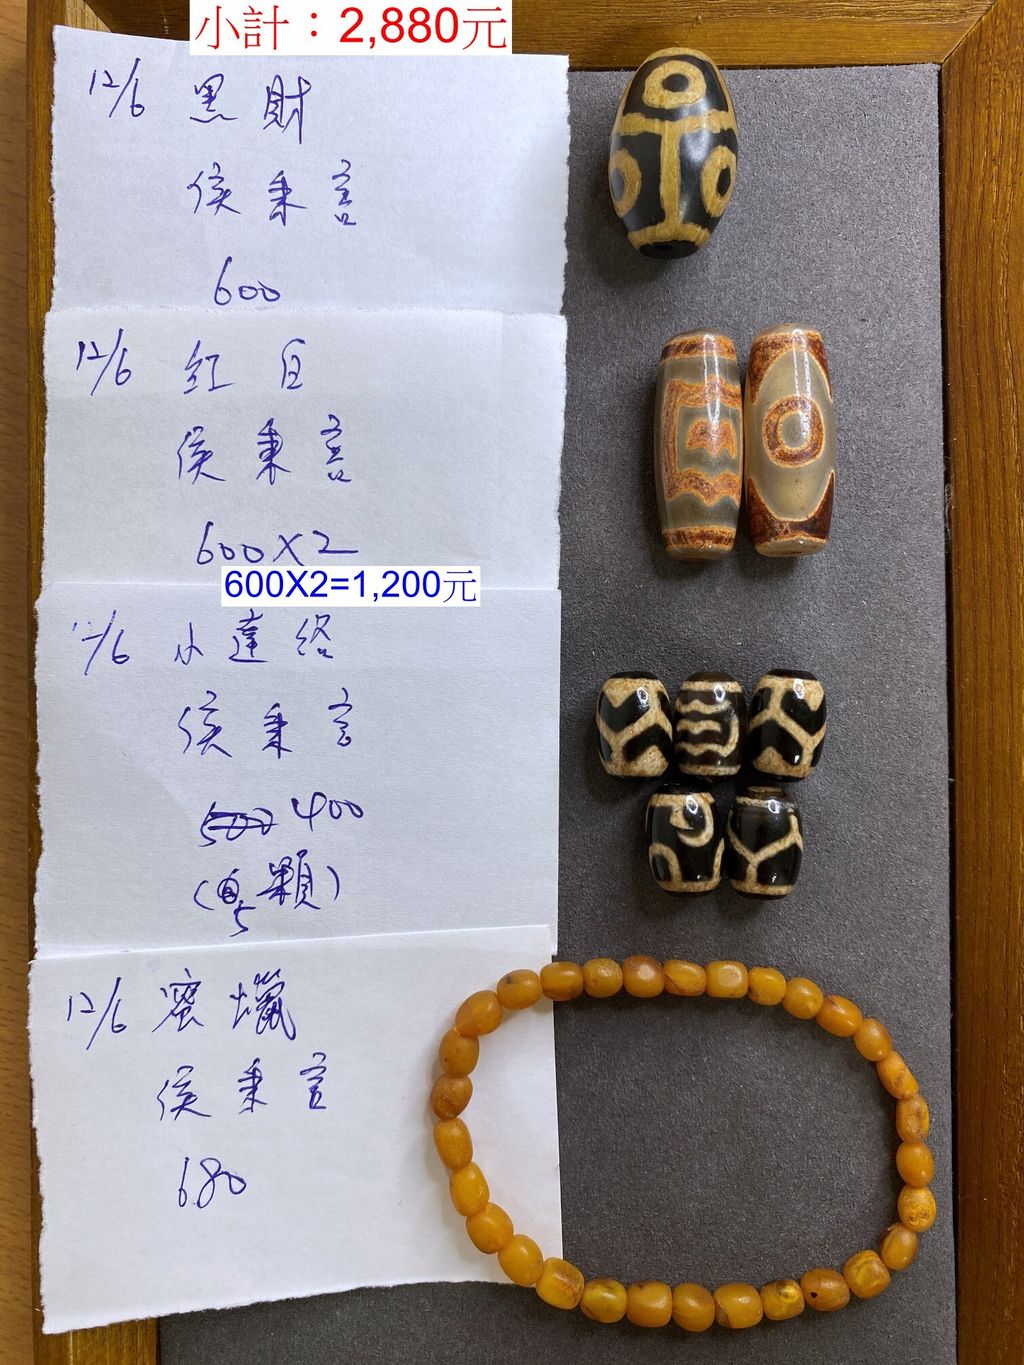 小計：2,880元
12/6 黑財
侯秉言
600
12/6 紅白
侯秉言
600X2
600X2=1,200元
12/6 小達絡
侯秉言
500 400
(5顆)
12/6 蜜蠟
侯秉言
680